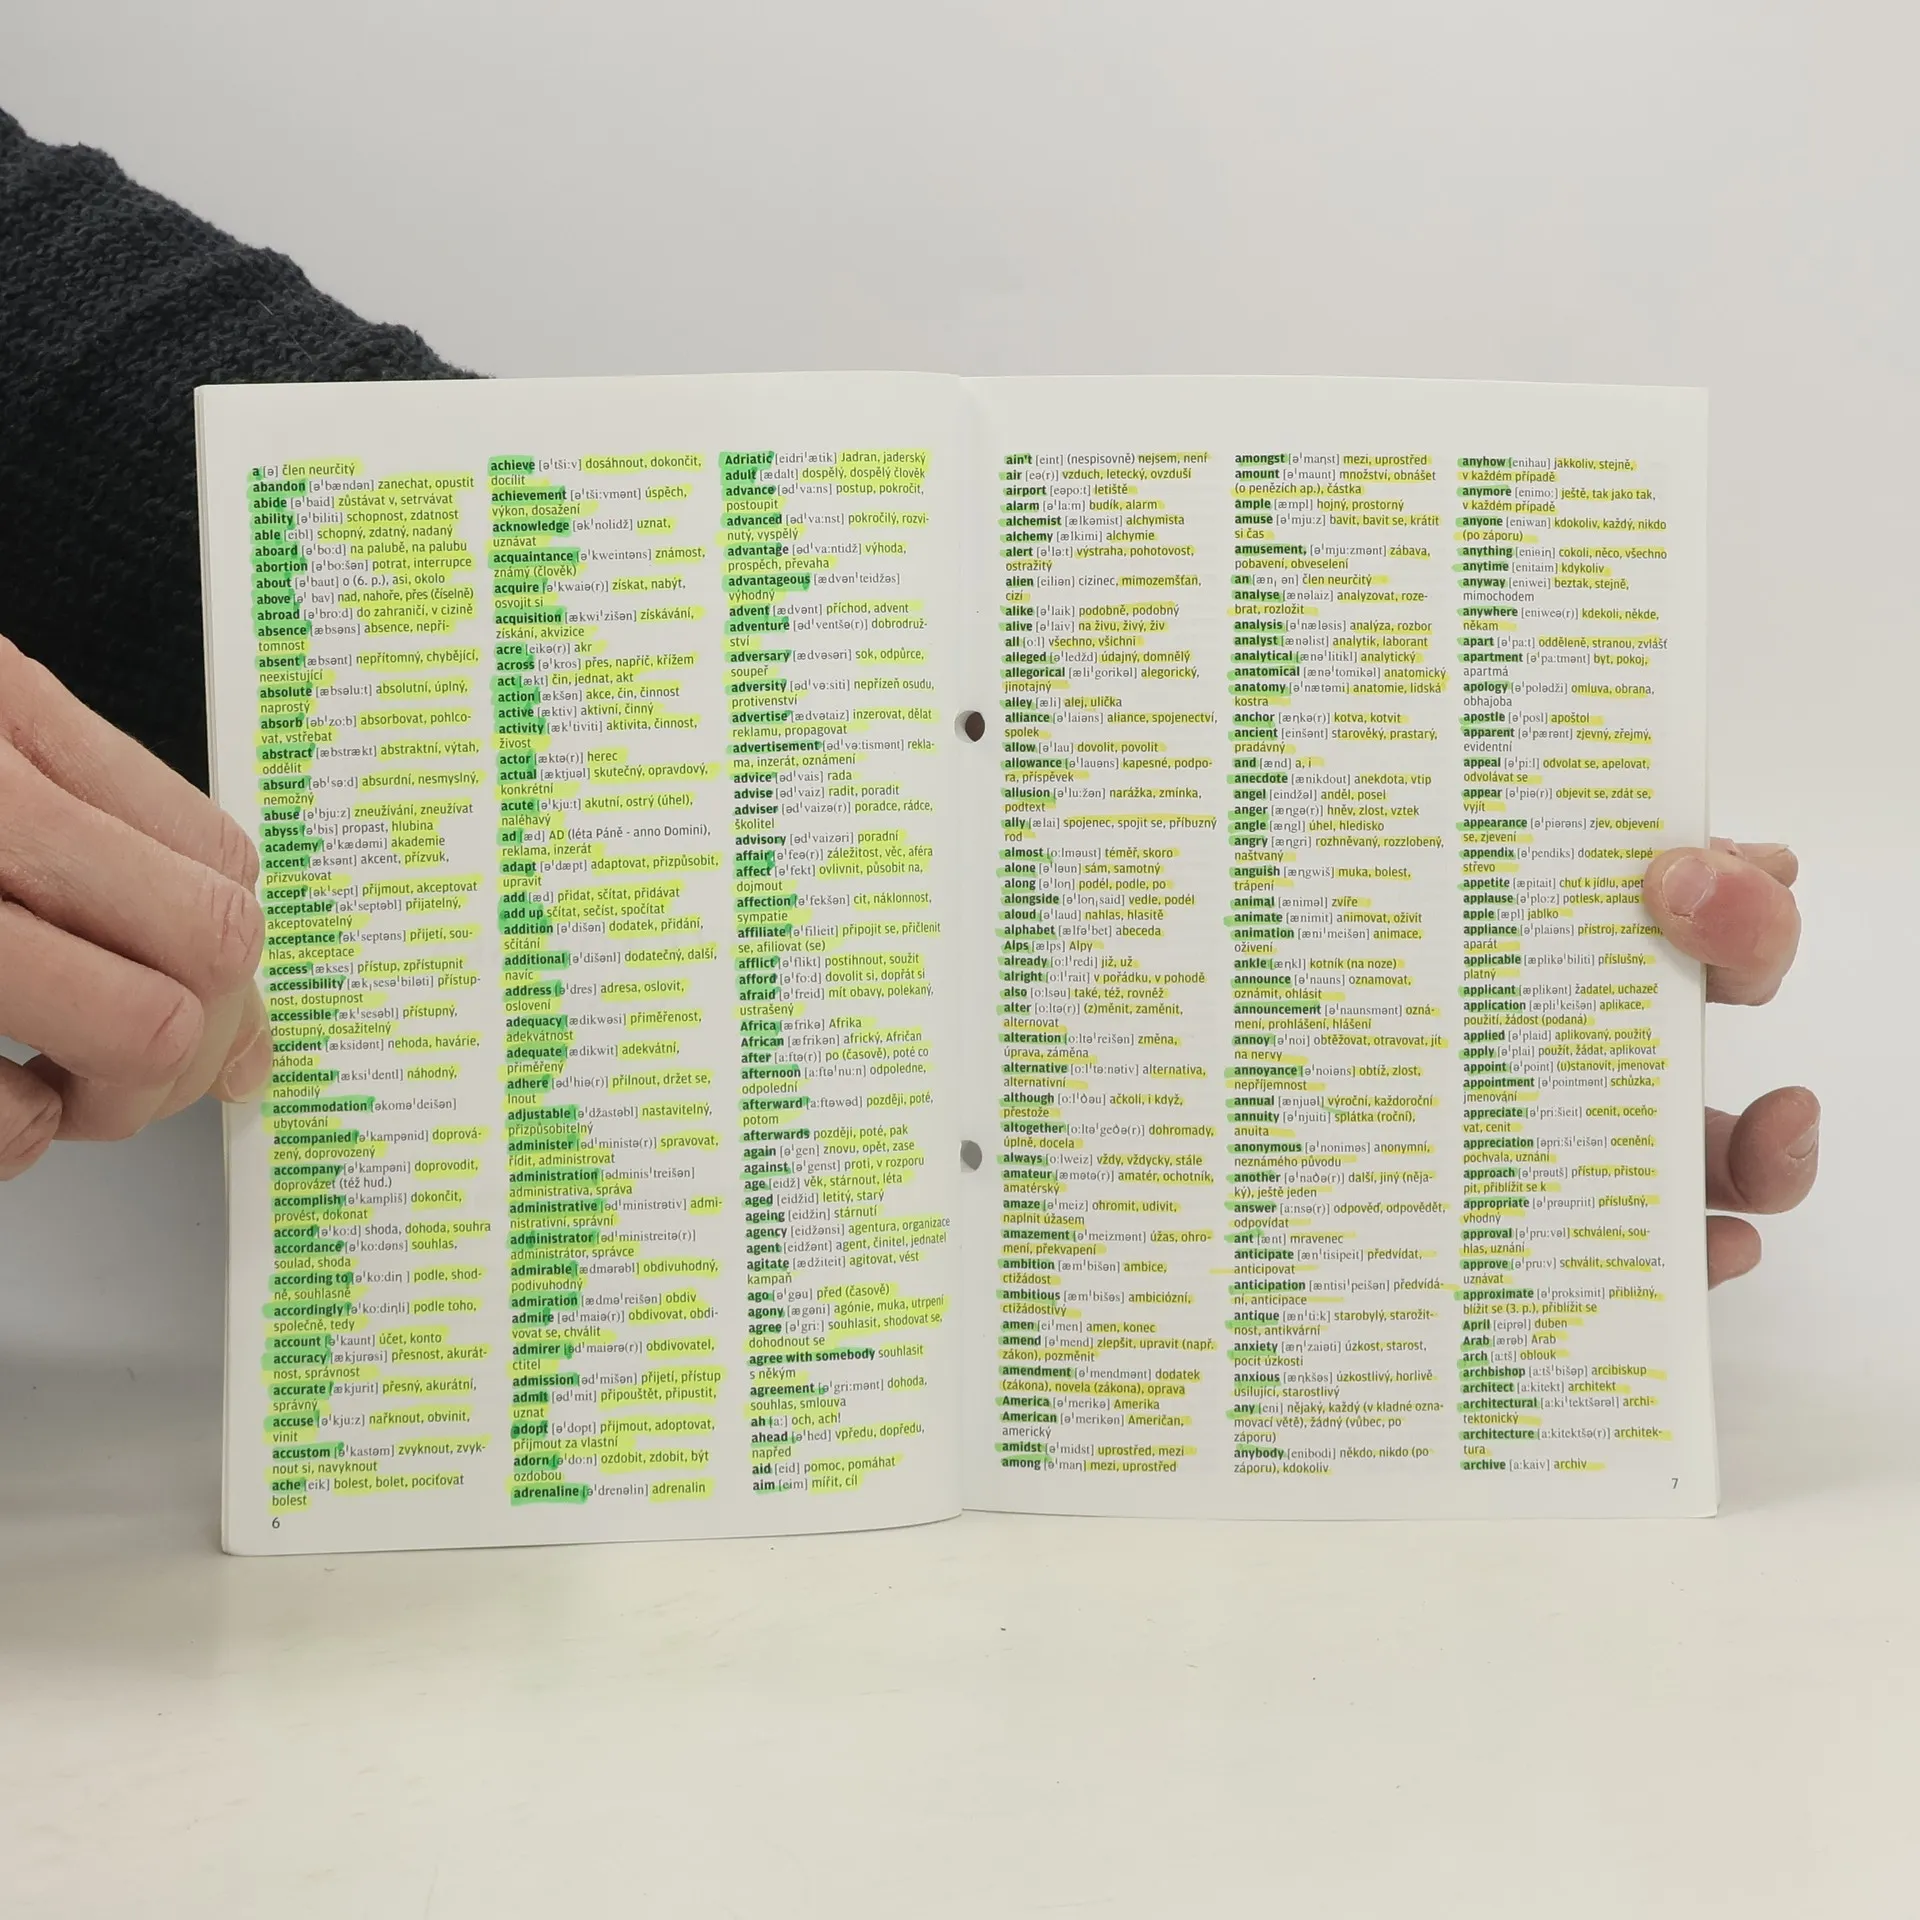 a [ə] člen neurčitý
abandon [ə'bændən] zanechat, opustit
abide [ə'baid] zůstávat v, setrvávat
ability [ə'biliti] schopnost, zdatnost
able [eibl] schopný, zdatný, nadaný
aboard [ə'bo:d] na palubě, na palubu
abortion [ə'bo:šən] potrat, interrupce
about [ə'baut] o (6. p.), asi, okolo
above [ə' bav] nad, nahoře, přes (číselně)
abroad [ə'bro:d] do zahraničí, v cizině
absence [æbsəns] absence, nepří-
tomnost
absent [æbsənt] nepřítomný, chybějící,
neexistující
absolute [æbsəlu:t] absolutní, úplný,
naprostý
absorb [əb'zo:b] absorbovat, pohlco-
vat, vstřebat
abstract [æbstrækt] abstraktní, výtah,
oddělit
absurd [əb'sə:d] absurdní, nesmyslný,
nemožný
abuse [ə'bju:z] zneužívání, zneužívat
abyss [ə'bis] propast, hlubina
academy [ə'kædəmi] akademie
accent [æksənt] akcent, přízvuk,
přízvukovat
accept [ək'sept] přijmout, akceptovat
acceptable [ək'septəbl] přijatelný,
akceptovatelný
acceptance [ək'septəns] přijetí, sou-
hlas, akceptace
access [ækses] přístup, zpřístupnit
accessibility [æk,sesə'biləti] přístup-
nost, dostupnost
accessible [æk'sesəbl] přístupný,
dostupný, dosažitelný
accident [æksidənt] nehoda, havárie,
náhoda
accidental [æksi'dentl] náhodný,
nahodilý
accommodation [əkomə'deišən]
ubytování
accompanied [ə'kampənid] doprová-
zený, doprovozený
accompany [ə'kampəni] doprovodit,
doprovázet (též hud.)
accomplish [ə'kampliš] dokončit,
provést, dokonat
accord [ə'ko:d] shoda, dohoda, souhra
accordance [ə'ko:dəns] souhlas,
soulad, shoda
according to [ə'ko:diŋ ] podle, shod-
ně, souhlasně
accordingly [ə'ko:diŋli] podle toho,
společně, tedy
account [ə'kaunt] účet, konto
accuracy [ækjurəsi] přesnost, akurát-
nost, správnost
accurate [ækjurit] přesný, akurátní,
správný
accuse [ə'kju:z] nařknout, obvinit,
vinit
accustom [ə'kastəm] zvyknout, zvyk-
nout si, navyknout
ache [eik] bolest, bolet, pociťovat
bolest
6
achieve [ə'tši:v] dosáhnout, dokončit,
docílit
achievement [ə'tši:vmənt] úspěch,
výkon, dosažení
acknowledge [ək'nolidž] uznat,
uznávat
acquaintance [ə'kweintəns] známost,
známý (člověk)
acquire [ə'kwaiə(r)] získat, nabýt,
osvojit si
acquisition [ækwi'zišən] získávání,
získání, akvizice
acre [eikə(r)] akr
across [ə'kros] přes, napříč, křížem
act [ækt] čin, jednat, akt
action [ækšən] akce, čin, činnost
active [æktiv] aktivní, činný
activity [æk'tiviti] aktivita, činnost,
živost
actor [æktə(r)] herec
actual [æktjuəl] skutečný, opravdový,
konkrétní
acute [ə'kju:t] akutní, ostrý (úhel),
naléhavý
ad [æd] AD (léta Páně - anno Domini),
reklama, inzerát
adapt [ə'dæpt] adaptovat, přizpůsobit,
upravit
add [æd] přidat, sčítat, přidávat
add up sčítat, sečíst, spočítat
addition [ə'dišən] dodatek, přidání,
sčítání
additional [ə'dišənl] dodatečný, další,
navíc
address [ə'dres] adresa, oslovit,
oslovení
adequacy [ædikwəsi] přiměřenost,
adekvátnost
adequate [ædikwit] adekvátní,
přiměřený
adhere [əd'hiə(r)] přilnout, držet se,
lnout
adjustable [ə'džastəbl] nastavitelný,
přizpůsobitelný
administer [əd'ministə(r)] spravovat,
řídit, administrovat
administration [ədminis'treišən]
administrativa, správa
administrative [əd'ministrətiv] admi-
nistrativní, správní
administrator [əd'ministreitə(r)]
administrátor, správce
admirable [ædmərəbl] obdivuhodný,
podivuhodný
admiration [ædmə'reišən] obdiv
admire [əd'maiə(r)] obdivovat, obdi-
vovat se, chválit
admirer [əd'maiərə(r)] obdivovatel,
ctitel
admission [əd'mišən] přijetí, přístup
admit [əd'mit] připouštět, připustit,
uznat
adopt [ə'dopt] přijmout, adoptovat,
přijmout za vlastní
adorn [ə'do:n] ozdobit, zdobit, být
ozdobou
adrenaline [ə'drenəlin] adrenalin
Adriatic [eidri'ætik] Jadran, jaderský
adult [ædalt] dospělý, dospělý člověk
advance [əd'va:ns] postup, pokročit,
postoupit
advanced [əd'va:nst] pokročilý, rozvi-
nutý, vyspělý
advantage [əd'va:ntidž] výhoda,
prospěch, převaha
advantageous [ædvən'teidžəs]
výhodný
advent [ædvənt] příchod, advent
adventure [əd'ventšə(r)] dobrodruž-
ství
adversary [ædvəsəri] sok, odpůrce,
soupeř
adversity [əd'və:siti] nepřízeň osudu,
protivenství
advertise [ædvətaiz] inzerovat, dělat
reklamu, propagovat
advertisement [əd'və:tismənt] rekla-
ma, inzerát, oznámení
advice [əd'vais] rada
advise [əd'vaiz] radit, poradit
adviser [əd'vaizə(r)] poradce, rádce,
školitel
advisory [əd'vaizəri] poradní
affair [ə'feə(r)] záležitost, věc, aféra
affect [ə'fekt] ovlivnit, působit na,
dojmout
affection [ə'fekšən] cit, náklonnost,
sympatie
affiliate [ə'filieit] připojit se, přičlenit
se, afiliovat (se)
afflict [ə'flikt] postihnout, soužit
afford [ə'fo:d] dovolit si, dopřát si
afraid [ə'freid] mít obavy, polekaný,
ustrašený
Africa [æfrikə] Afrika
African [æfrikən] africký, Afričan
after [a:ftə(r)] po (časově), poté co
afternoon [a:ftə'nu:n] odpoledne,
odpolední
afterward [a:ftəwəd] později, poté,
potom
afterwards později, poté, pak
again [ə'gen] znovu, opět, zase
against [ə'genst] proti, v rozporu
age [eidž] věk, stárnout, léta
aged [eidžid] letitý, starý
ageing [eidžiŋ] stárnutí
agency [eidžənsi] agentura, organizace
agent [eidžənt] agent, činitel, jednatel
agitate [ædžiteit] agitovat, vést
kampaň
ago [ə'gəu] před (časově)
agony [ægəni] agónie, muka, utrpení
agree [ə'gri:] souhlasit, shodovat se,
dohodnout se
agree with somebody souhlasit
s někým
agreement [ə'gri:mənt] dohoda,
souhlas, smlouva
ah [a:] och, ach!
ahead [ə'hed] vpředu, dopředu,
napřed
aid [eid] pomoc, pomáhat
aim [eim] mířit, cíl
ain't [eint] (nespisovně) nejsem, není
air [eə(r)] vzduch, letecký, ovzduší
airport [eəpo:t] letiště
alarm [ə'la:m] budík, alarm
alchemist [ælkəmist] alchymista
alchemy [ælkimi] alchymie
alert [ə'lə:t] výstraha, pohotovost,
ostražitý
alien [eiliən] cizinec, mimozemšťan,
cizí
alike [ə'laik] podobně, podobný
alive [ə'laiv] na živu, živý, živ
all [o:l] všechno, všichni
alleged [ə'ledžd] údajný, domnělý
allegorical [æli'gorikəl] alegorický,
jinotajný
alley [æli] alej, ulička
alliance [ə'laiəns] aliance, spojenectví,
spolek
allow [ə'lau] dovolit, povolit
allowance [ə'lauəns] kapesné, podpo-
ra, příspěvek
allusion [ə'lu:žən] narážka, zmínka,
podtext
ally [ælai] spojenec, spojit se, příbuzný
rod
almost [o:lməust] téměř, skoro
alone [ə'ləun] sám, samotný
along [ə'loŋ] podél, podle, po
alongside [ə'loŋ,said] vedle, podél
aloud [ə'laud] nahlas, hlasitě
alphabet [ælfə'bet] abeceda
Alps [ælps] Alpy
already [o:l'redi] již, už
alright [o:l'rait] v pořádku, v pohodě
also [o:lsəu] také, též, rovněž
alter [o:ltə(r)] (z)měnit, zaměnit,
alternovat
alteration [o:ltə'reišən] změna,
úprava, záměna
alternative [o:l'tə:nətiv] alternativa,
alternativní
although [o:l'ðəu] ačkoli, i když,
přestože
altogether [o:ltə'geðə(r)] dohromady,
úplně, docela
always [o:lweiz] vždy, vždycky, stále
amateur [æmətə(r)] amatér, ochotník,
amatérský
amaze [ə'meiz] ohromit, udivit,
naplnit úžasem
amazement [ə'meizmənt] úžas, ohro-
mení, překvapení
ambition [æm'bišən] ambice,
ctižádost
ambitious [æm'bišəs] ambiciózní,
ctižádostivý
amen [ei'men] amen, konec
amend [ə'mend] zlepšit, upravit (např.
zákon), pozměnit
amendment [ə'mendmənt] dodatek
(zákona), novela (zákona), oprava
America [ə'merikə] Amerika
American [ə'merikən] Američan,
americký
amidst [ə'midst] uprostřed, mezi
among [ə'maŋ] mezi, uprostřed
amongst [ə'maŋst] mezi, uprostřed
amount [ə'maunt] množství, obnášet
(o penězích ap.), částka
ample [æmpl] hojný, prostorný
amuse [ə'mju:z] bavit, bavit se, krátit
si čas
amusement, [ə'mju:zmənt] zábava,
pobavení, obveselení
an [æn, ən] člen neurčitý
analyse [ænəlaiz] analyzovat, roze-
brat, rozložit
analysis [ə'næləsis] analýza, rozbor
analyst [ænəlist] analytik, laborant
analytical [ænə'litikl] analytický
anatomical [ænə'tomikəl] anatomický
anatomy [ə'nætəmi] anatomie, lidská
kostra
anchor [æŋkə(r)] kotva, kotvit
ancient [einšənt] starověký, prastarý,
pradávný
and [ænd] a, i
anecdote [ænikdout] anekdota, vtip
angel [eindžəl] anděl, posel
anger [æŋgə(r)] hněv, zlost, vztek
angle [æŋgl] úhel, hledisko
angry [æŋgri] rozhněvaný, rozzlobený,
naštvaný
anguish [æŋgwiš] muka, bolest,
trápení
animal [æniməl] zvíře
animate [ænimit] animovat, oživit
animation [æni'meišən] animace,
oživení
ankle [æŋkl] kotník (na noze)
announce [ə'nauns] oznamovat,
oznámit, ohlásit
announcement [ə'naunsmənt] ozná-
mení, prohlášení, hlášení
annoy [ə'noi] obtěžovat, otravovat, jít
na nervy
annoyance [ə'noiəns] obtíž, zlost,
nepříjemnost
annual [ænjuəl] výroční, každoroční
annuity [ə'njuiti] splátka (roční),
anuita
anonymous [ə'noniməs] anonymní,
neznámého původu
another [ə'naðə(r)] další, jiný (něja-
ký), ještě jeden
answer [a:nsə(r)] odpověď, odpovědět,
odpovídat
ant [ænt] mravenec
anticipate [æn'tisipeit] předvídat,
anticipovat
anticipation [æntisi'peišən] předvídá-
ní, anticipace
antique [æn'ti:k] starobylý, starožit-
nost, antikvární
anxiety [æŋ'zaiəti] úzkost, starost,
pocit úzkosti
anxious [æŋkšəs] úzkostlivý, horlivě
usilující, starostlivý
any [eni] nějaký, každý (v kladné ozna-
movací větě), žádný (vůbec, po
záporu)
anybody [enibodi] někdo, nikdo (po
záporu), kdokoliv
anyhow [enihau] jakkoliv, stejně,
v každém případě
anymore [enimo:] ještě, tak jako tak,
v každém případě
anyone [eniwan] kdokoliv, každý, nikdo
(po záporu)
anything [eniθiŋ] cokoli, něco, všechno
anytime [enitaim] kdykoliv
anyway [eniwei] beztak, stejně,
mimochodem
anywhere [eniweə(r)] kdekoli, někde,
někam
apart [ə'pa:t] odděleně, stranou, zvlášť
apartment [ə'pa:tmənt] byt, pokoj,
apartmá
apology [ə'polədži] omluva, obrana,
obhajoba
apostle [ə'posl] apoštol
apparent [ə'pærənt] zjevný, zřejmý,
evidentní
appeal [ə'pi:l] odvolat se, apelovat,
odvolávat se
appear [ə'piə(r)] objevit se, zdát se,
vyjít
appearance [ə'piərəns] zjev, objevení
se, zjevení
appendix [ə'pendiks] dodatek, slepé
střevo
appetite [æpitait] chuť k jídlu, apet
applause [ə'plo:z] potlesk, aplaus
apple [æpl] jablko
appliance [ə'plaiəns] přístroj, zařízení,
aparát
applicable [æplikə'biliti] příslušný,
platný
applicant [æplikənt] žadatel, uchazeč
application [æpli'keišən] aplikace,
použití, žádost (podaná)
applied [ə'plaid] aplikovaný, použitý
apply [ə'plai] použít, žádat, aplikovat
appoint [ə'point] (u)stanovit, jmenovat
appointment [ə'pointmənt] schůzka,
jmenování
appreciate [ə'pri:šieit] ocenit, oceňo-
vat, cenit
appreciation [əpri:ši'eišən] ocenění,
pochvala, uznání
approach [ə'prəutš] přístup, přistou-
pit, přiblížit se k
appropriate [ə'prəupriit] příslušný,
vhodný
approval [ə'pru:vəl] schválení, sou-
hlas, uznání
approve [ə'pru:v] schválit, schvalovat,
uznávat
approximate [ə'proksimit] přibližný,
blížit se (3. p.), přiblížit se
April [eiprəl] duben
Arab [ærəb] Arab
arch [a:tš] oblouk
archbishop [a:tš'bišəp] arcibiskup
architect [a:kitekt] architekt
architectural [a:ki'tektšərəl] archi-
tektonický
architecture [a:kitektšə(r)] architek-
tura
archive [a:kaiv] archiv
7